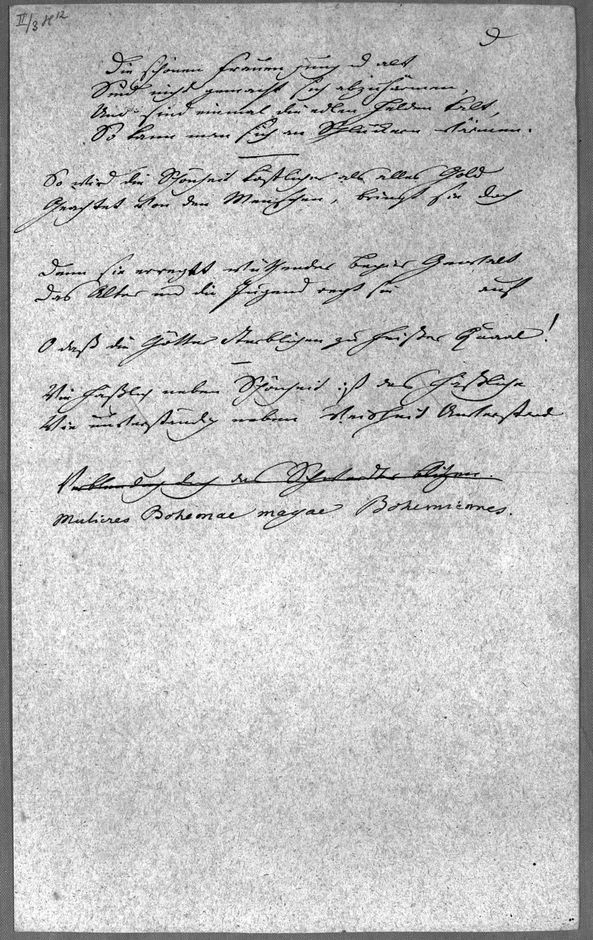 II/3 H12
Die schönen Frauen jung u alt
Sind nicht gemacht sich abzuhärmen,
Und sind einmal die edlen Helden kalt,
So kann man sich an Schluckern wärmen.
So wird die Schönheit köstlicher als alles Gold
Geachtet von den Menschen, bringt sie doch
Denn sie erregt wüthender Begier Gewalt
Das Alter und die Jugend regt sie auf
O daß die Götter Sterblichen zu heißer Quaal!
Wie häßlich neben Schönheit ist das Häßliche
Wie unverständig neben Weisheit Unverstand
das
Mulieres Bohemae magae Bohemiennes.